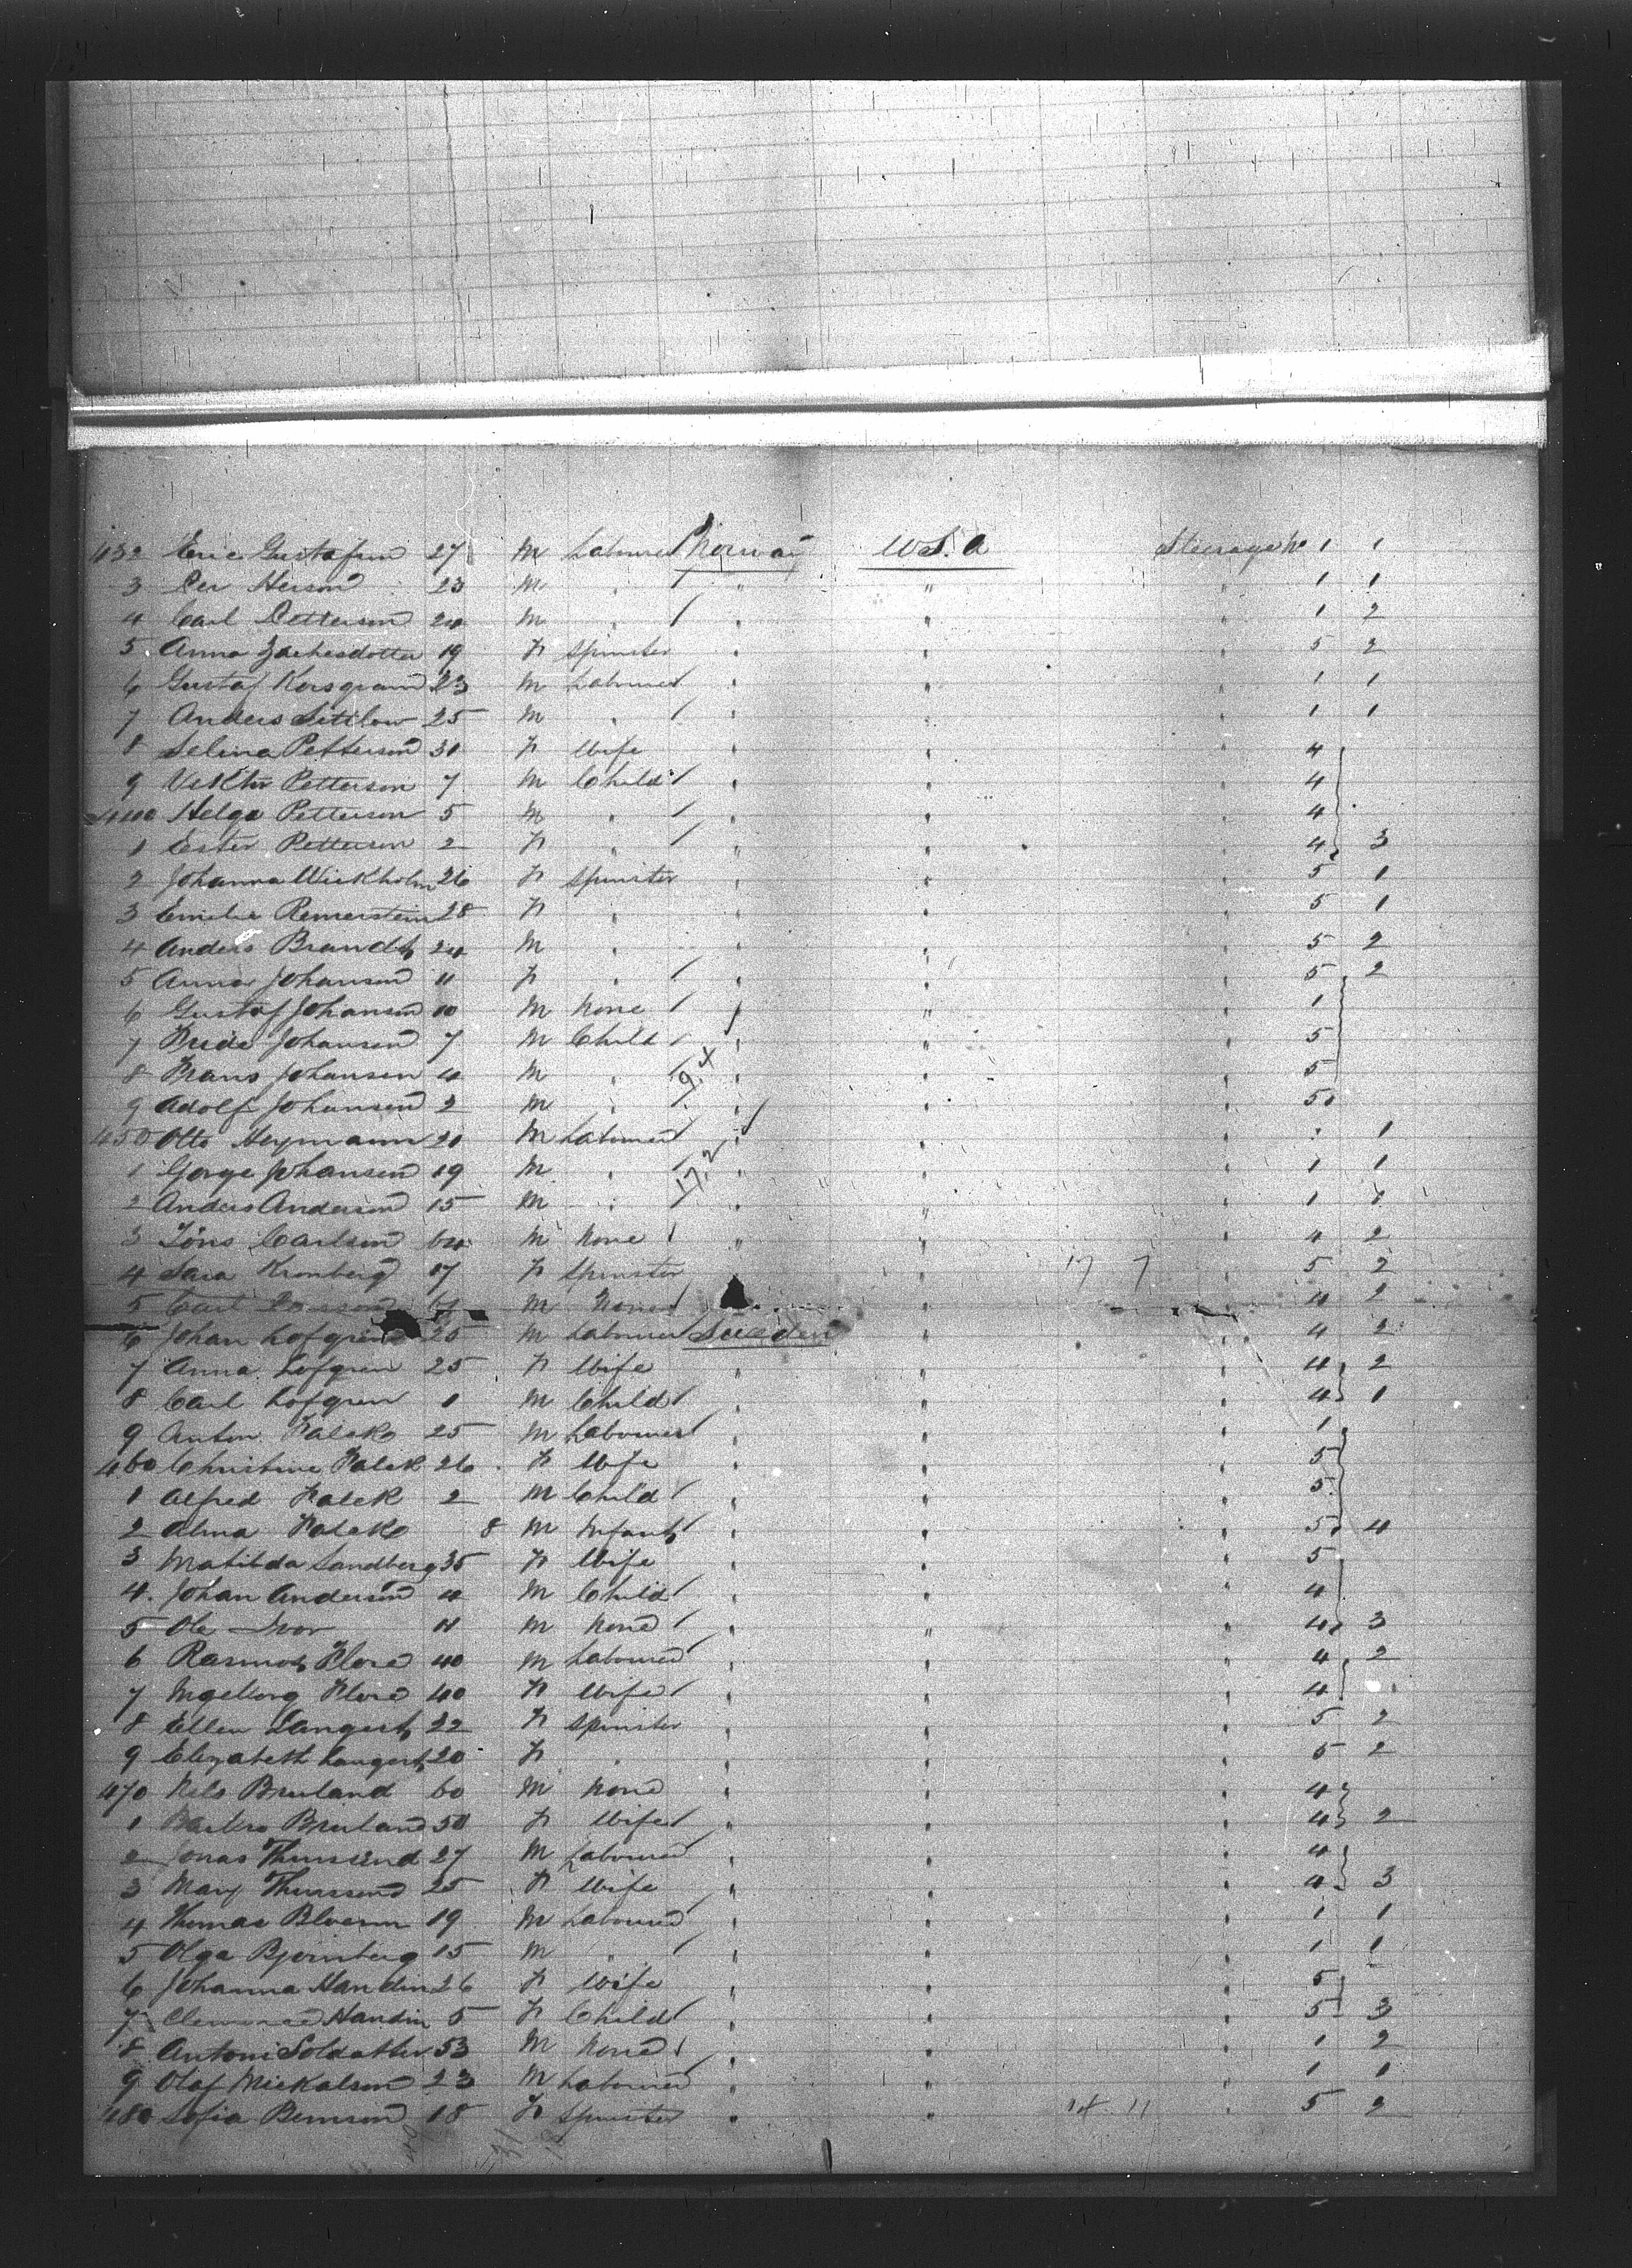 432 Eric Gustafson 27 M Labourer Norway U.S.A Steerage No 1 1
3 Per Herson 23 M " " " " 1 1
4 Carl Petterson 24 M " " " " 1 2
5 Anna 19 F Spinster " " " 5 2
6 Gustaf 23 M Labourer " " " 1 1
7 Anders 25 M " " " " 1 1
8 Selma Petterson 30 F Wife " " " 4
9 Viktor Petterson 7 M Child " " " 4
440 Helge Petterson 5 M " " " " 4
1 Ester Petterson 2 F " " " " 4 3
2 Johanna Wickholm 26 F Spinster " " " 5 1
3 Emelie 28 F " " " " 5 1
4 Anders Brandt 24 M " " " " 5 2
5 Anna Johanson 11 F " " " " 5 2
6 Gustaf Johanson 10 M None " " " 1
7 Johanson 7 M Child " " " 5
8 Frans Johansen 4 M " " " " 5
9 Adolf Johanson 2 M " " " " 5
450 Otto Heymann 20 M Labourer " " " 1
1 Gorge Johansen 19 M " " " " 1 1
2 Anders Anderson 15 M " " " " 1 1
3 Jöns Carlson 64 M None " " " 4 2
4 Sara Kronberg 17 F Spinster " " 17 7 " 5 2
5 Carl M None " " 4 2
6 Johan Lofgren 25 M Labourer Sweden " " 4 2
7 Anna Lofgren 25 F Wife " " " 4 2
8 Carl Lofgren 1 M Child " " " 4 1
9 Anton Falck 25 M Labourer " " " 1
460 Christine Falck 26 F Wife " " " 5
1 Alfred Falck 2 M Child " " " 5
2 Alma Falck 8 M Infant " " " 5 4
3 Matilda Sandberg 35 F Wife " " " 5
4 Johan Anderson 4 M Child " " " 4
5 Ole 11 M None " " " 4 3
6 Rasmus Flore 40 M Labourer " " " 4 2
7 Ingeborg Flore 40 F Wife " " " 4
8 Ellen Langert 22 F Spinster " " " 5 2
9 Elizabeth Langert 20 F " " " " 5 2
470 Nils Bruland 60 M None " " " 4
1 Bruland 50 F Wife " " " 4 2
2 Jonas 27 M Labourer " " " 4
3 Mary 25 F Wife " " " 4 3
4 Thomas 19 M Labourer " " " 1 1
5 Olga Bjornberg 15 M " " " " 1 1
6 Johanna Handin 26 F Wife " " " 5
7 Handin 5 F Child " " " 5 3
8 Antoni 53 M None " " " 1 2
9 Olaf Mickalson 23 M Labourer " " " 1 1
480 Sofia Bernson 18 F Spinster " " 14 11 " 5 2